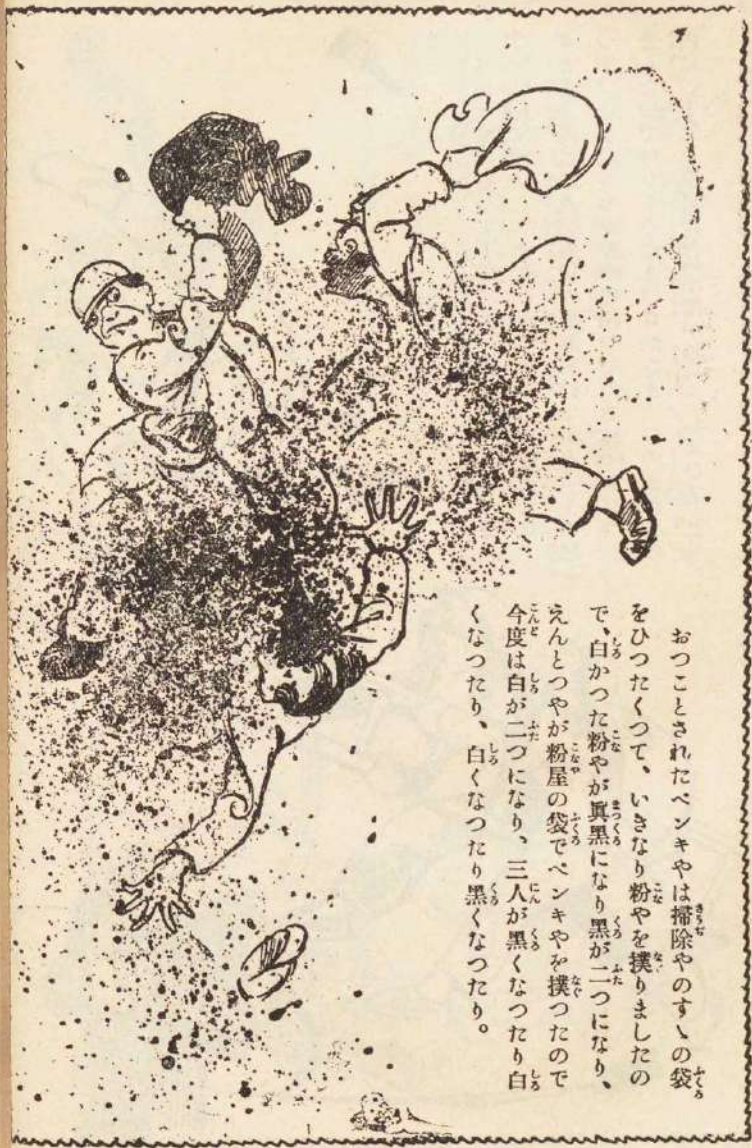 おつことされたペンキやは掃除やのすゝの袋
をひつたくつて、いきなり粉やを撲りましたの
で、白かつた粉やが眞黒になり黒が二つになり、
えんとつやが粉屋の袋でペンキやを撲つたので
今度は白が二つになり、三人が黒くなつたり白
くなつたり、白くなつたり黒くなつたり。